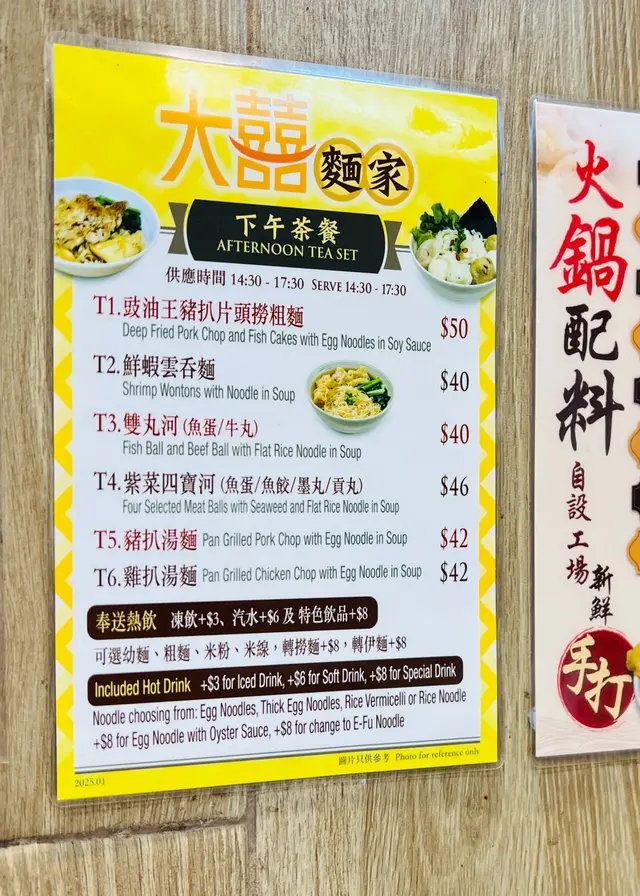 大囍麵家
下午茶餐
AFTERNOON TEA SET
供應時間 14:30 - 17:30 SERVE 14:30 - 17:30
T1.豉油王豬扒片頭撈粗麵
Deep Fried Pork Chop and Fish Cakes with Egg Noodles in Soy Sauce $50
T2.鮮蝦雲吞麵
Shrimp Wontons with Noodle in Soup $40
T3.雙丸河 (魚蛋/牛丸)
Fish Ball and Beef Ball with Flat Rice Noodle in Soup $40
T4.紫菜四寶河 (魚蛋/魚餃/墨丸/貢丸)
Four Selected Meat Balls with Seaweed and Flat Rice Noodle in Soup $46
T5.豬扒湯麵 Pan Grilled Pork Chop with Egg Noodle in Soup $42
T6.雞扒湯麵 Pan Grilled Chicken Chop with Egg Noodle in Soup $42
奉送熱飲 凍飲+$3、汽水+$6 及 特色飲品+$8
可選幼麵、粗麵、米粉、米線，轉撈麵+$8，轉伊麵+$8
Included Hot Drink +$3 for Iced Drink, +$6 for Soft Drink, +$8 for Special Drink
Noodle choosing from: Egg Noodles, Thick Egg Noodles, Rice Vermicelli or Rice Noodle
+$8 for Egg Noodle with Oyster Sauce, +$8 for change to E-Fu Noodle
圖片只供參考 Photo for reference only
2025.01
火鍋配料
自設工場
新鮮
手打